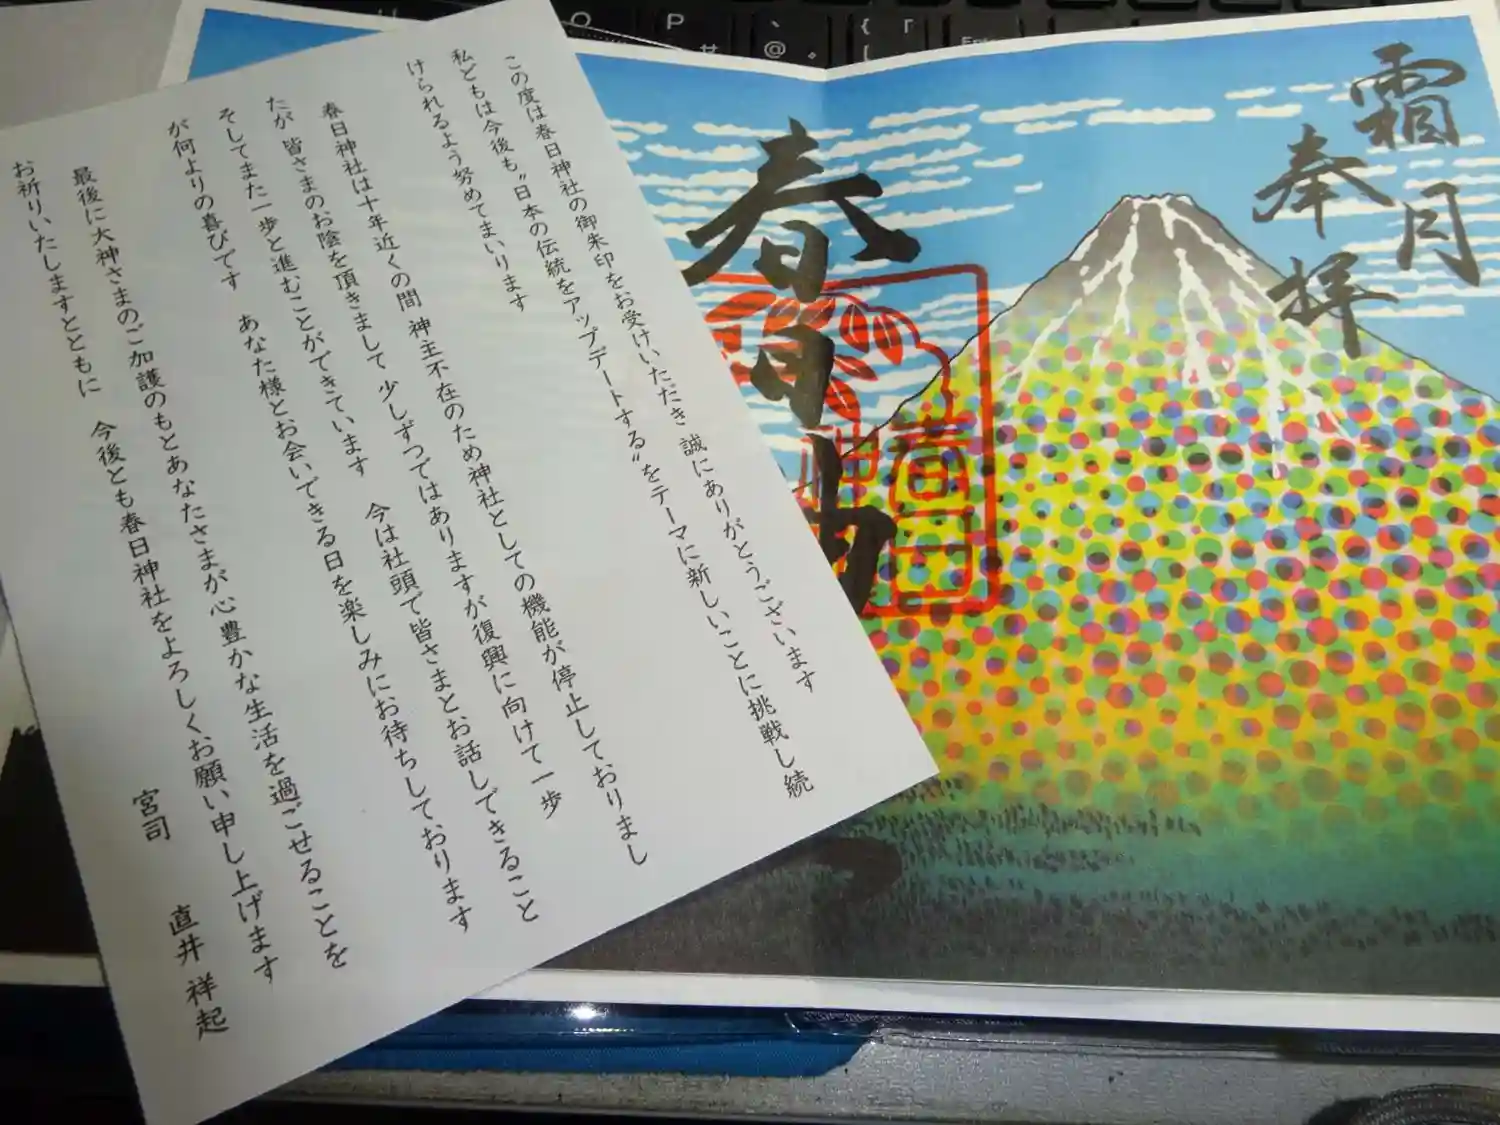 霜月
奉拝
春日神
春日
この度は春日神社の御朱印をお受けいただき 誠にありがとうございます
私どもは今後も〝日本の伝統をアップデートする〟をテーマに新しいことに挑戦し続
けられるよう努めてまいります
春日神社は十年近くの間 神主不在のため神社としての機能が停止しておりまし
たが 皆さまのお陰を頂きまして 少しずつではありますが復興に向けて一歩
そしてまた一歩と進むことができています 今は社頭で皆さまとお話しできること
が何よりの喜びです あなた様とお会いできる日を楽しみにお待ちしております
最後に大神さまのご加護のもとあなたさまが心豊かな生活を過ごせることを
お祈りいたしますとともに 今後とも春日神社をよろしくお願い申し上げます
宮司 直井 祥起
O
P
{
「
@
。
[
せ